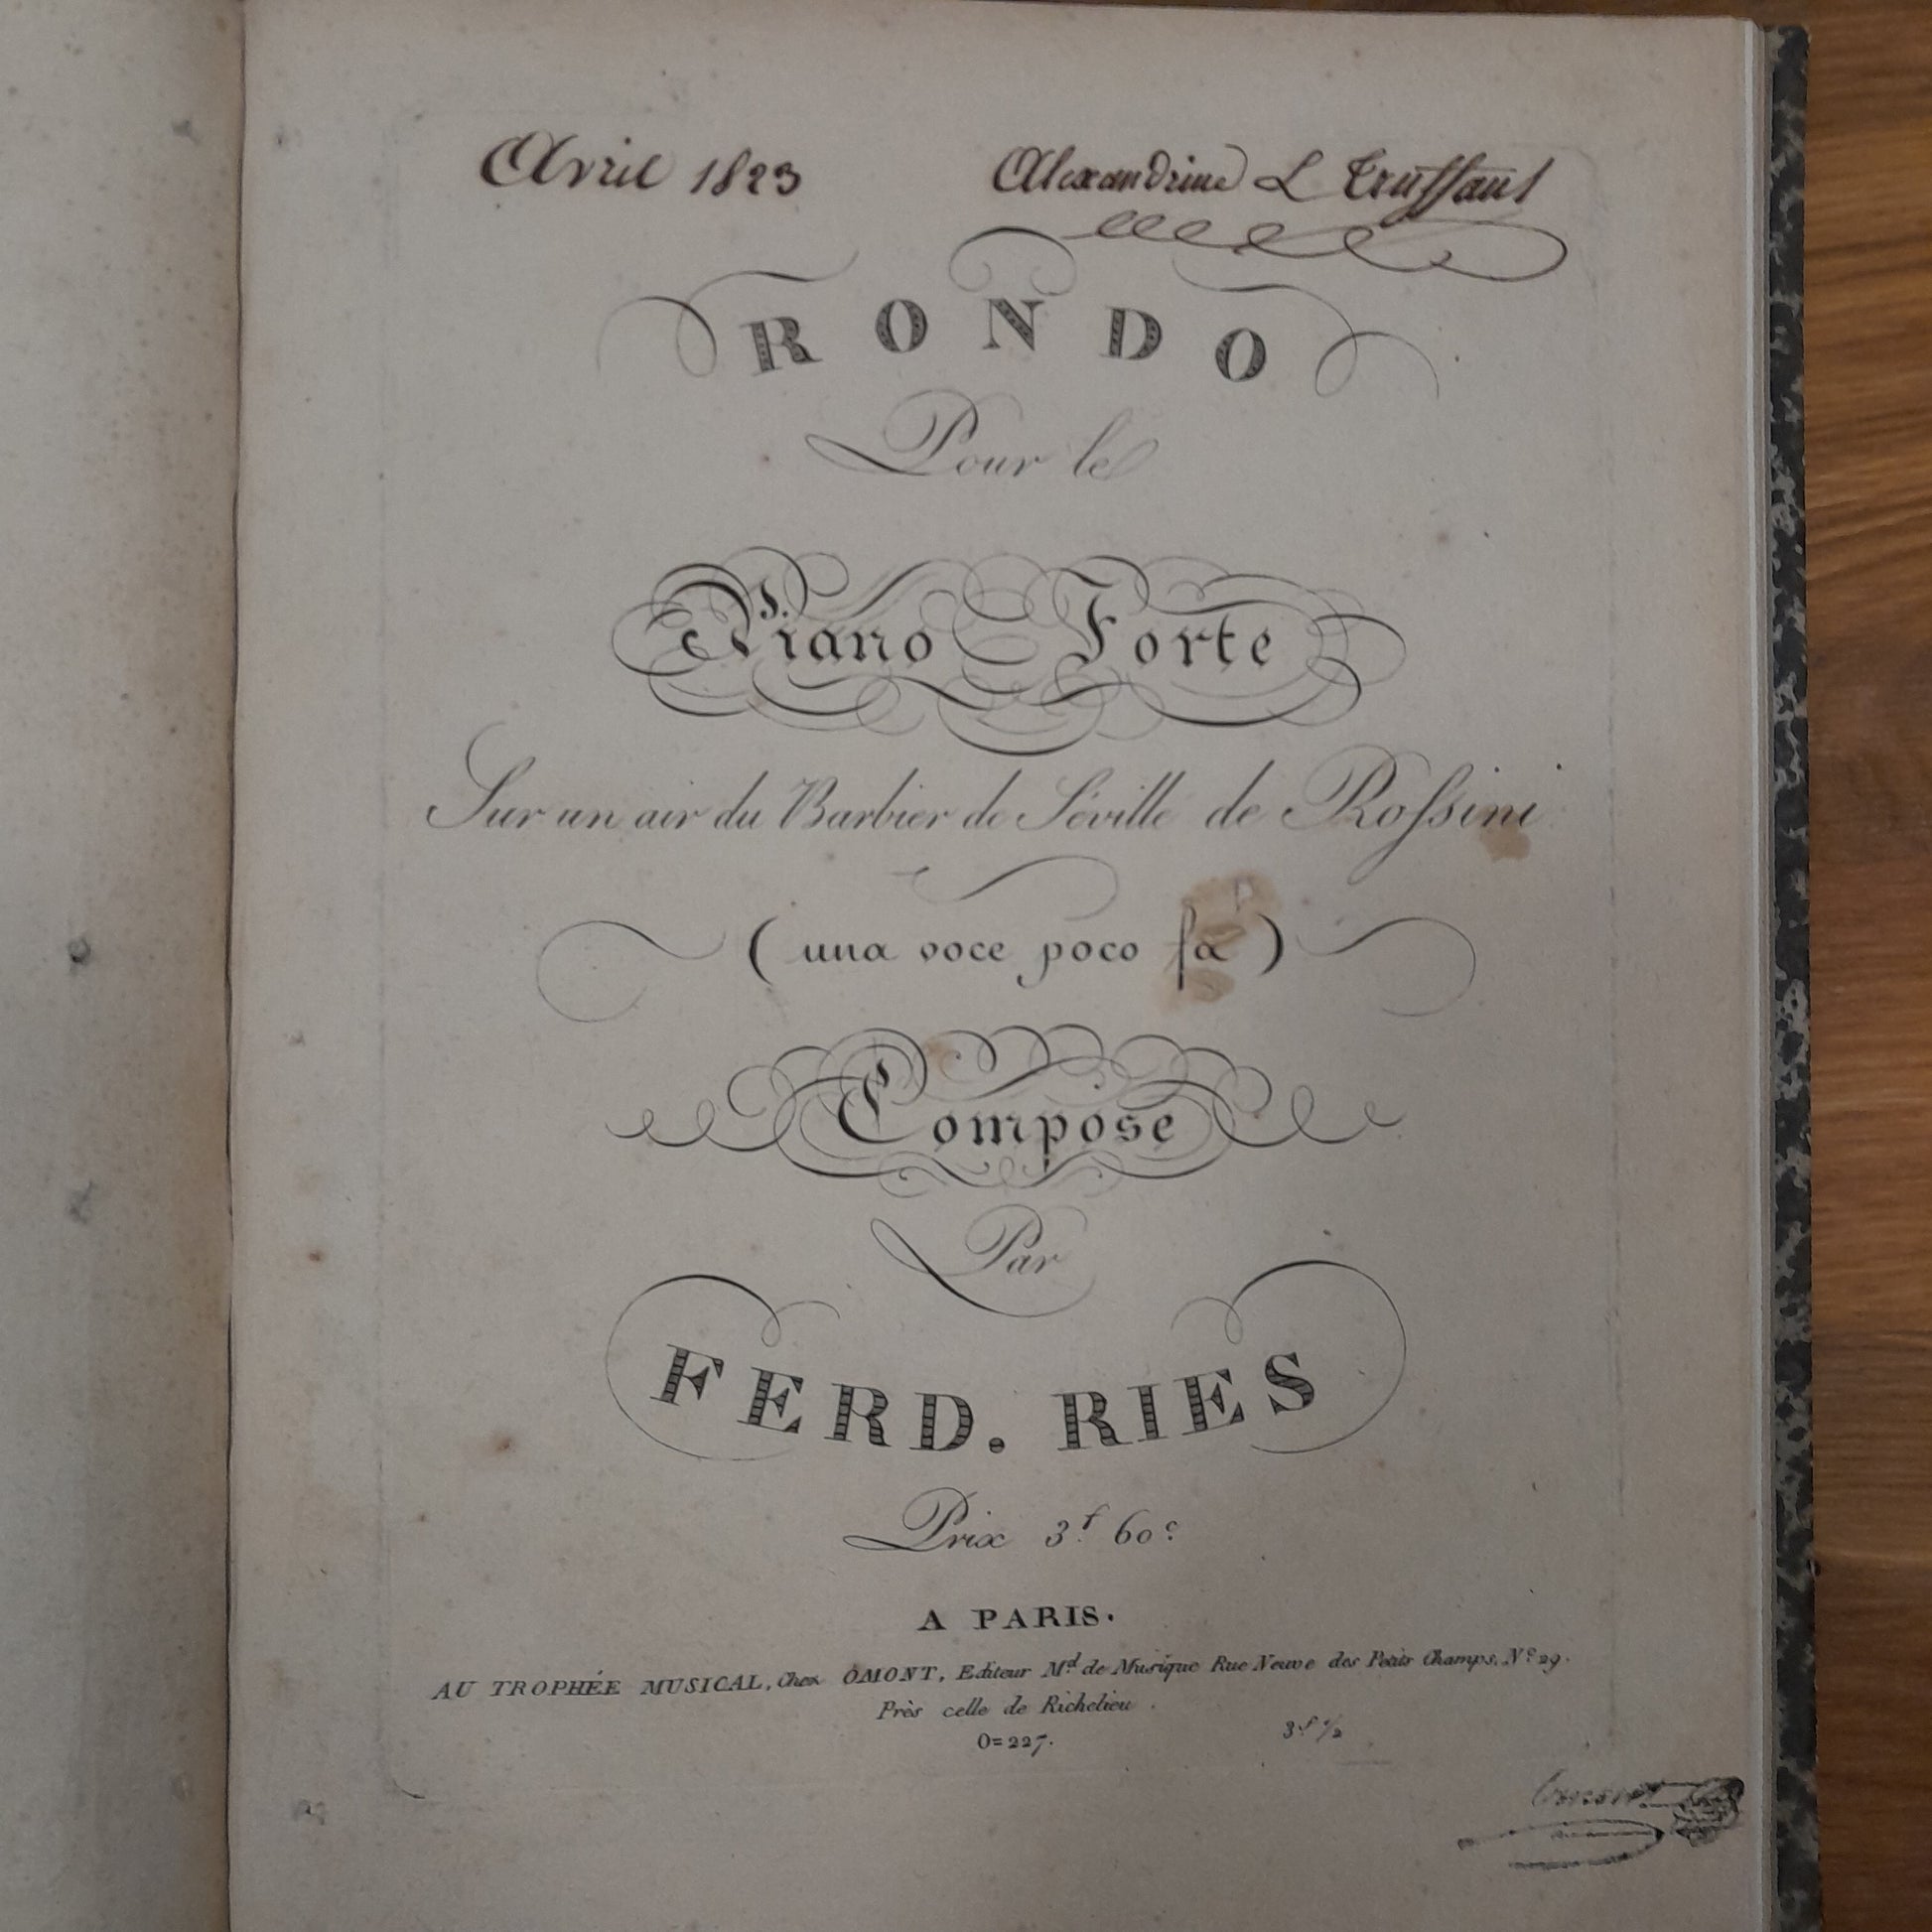 Avril 1823
Alexandrine L Truffaut
RONDO
Pour le
Piano Forte
Sur un air du Barbier de Séville de Rossini
( una voce poco fa )
Composé
Par
FERD. RIES
Prix 3f. 60c
A PARIS.
AU TROPHÉE MUSICAL, Chez OMONT, Editeur Md. de Musique Rue Neuve des Petits Champs, No. 29.
Près celle de Richelieu.
O=227.